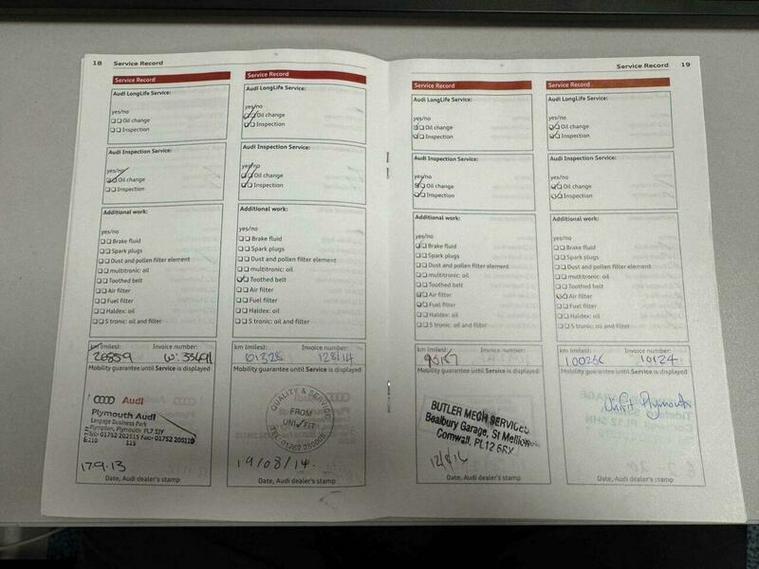 18 Service Record
Service Record
Audi LongLife Service:
yes/no
Oil change
Inspection
Audi Inspection Service:
yes/no
Oil change
Inspection
Additional work:
yes/no
Brake fluid
Spark plugs
Dust and pollen filter element
multitronic: oil
Toothed belt
Air filter
Fuel filter
Haldex: oil
S tronic: oil and filter
km (miles): Invoice number:
26859
Mobility guarantee until Service is displayed
Audi
Plymouth Audi
Langage Business Park
Plympton, Plymouth PL7 5JY
17.9.13
Date, Audi dealer's stamp
Service Record
Audi LongLife Service:
yes/no
Oil change
Inspection
Audi Inspection Service:
yes/no
Oil change
Inspection
Additional work:
yes/no
Brake fluid
Spark plugs
Dust and pollen filter element
multitronic: oil
Toothed belt
Air filter
Fuel filter
Haldex: oil
S tronic: oil and filter
km (miles): Invoice number:
61328 128114
Mobility guarantee until Service is displayed
QUALITY & SERVICE
FROM
UNI FIT
19/08/14.
Date, Audi dealer's stamp
Service Record 19
Service Record
Audi LongLife Service:
yes/no
Oil change
Inspection
Audi Inspection Service:
yes/no
Oil change
Inspection
Additional work:
yes/no
Brake fluid
Spark plugs
Dust and pollen filter element
multitronic: oil
Toothed belt
Air filter
Fuel filter
Haldex: oil
S tronic: oil and filter
km (miles): Invoice number:
Mobility guarantee until Service is displayed
BUTLER MECH SERVICES
Bealbury Garage, St Mellion
Cornwall, PL12 6RX
Date, Audi dealer's stamp
Service Record
Audi LongLife Service:
yes/no
Oil change
Inspection
Audi Inspection Service:
yes/no
Oil change
Inspection
Additional work:
yes/no
Brake fluid
Spark plugs
Dust and pollen filter element
multitronic: oil
Toothed belt
Air filter
Fuel filter
Haldex: oil
S tronic: oil and filter
km (miles): Invoice number:
100266 10124
Mobility guarantee until Service is displayed
Unifit Plymouth
Date, Audi dealer's stamp